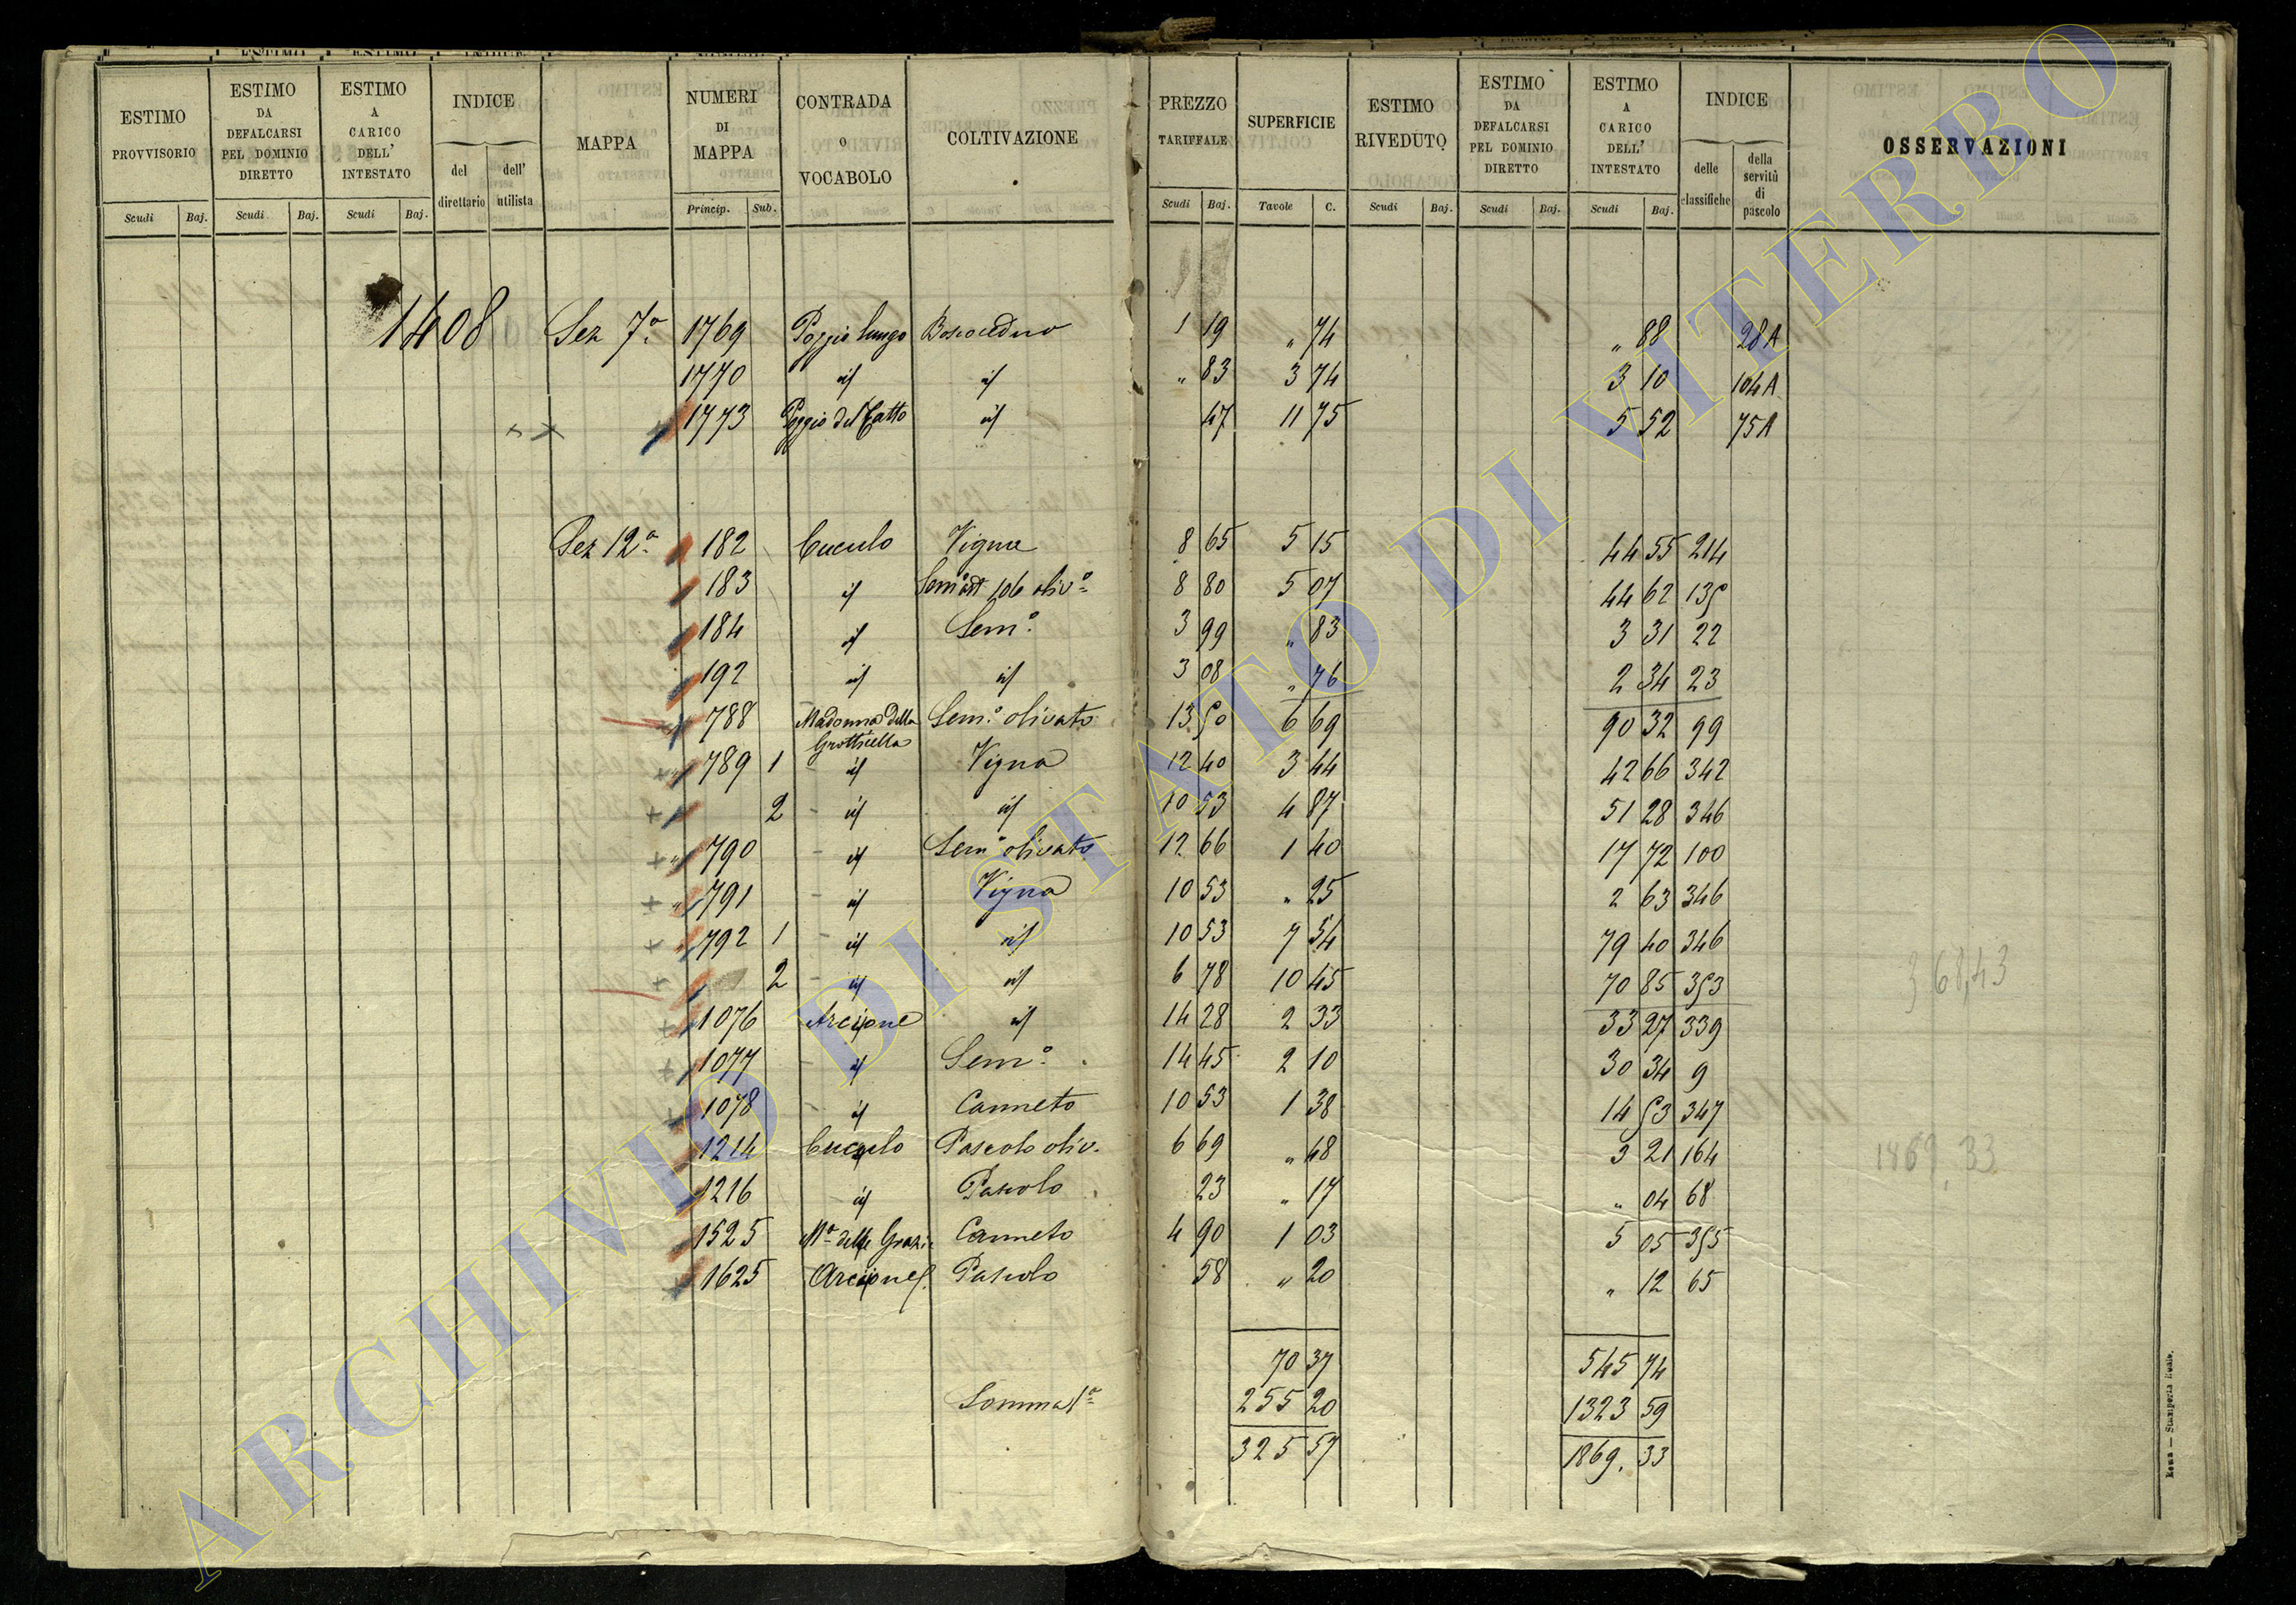 ESTIMO PROVVISORIO | ESTIMO DA DEFALCARSI PEL DOMINIO DIRETTO | ESTIMO A CARICO DELL' INTESTATO | INDICE del direttario dell' utilista | MAPPA | NUMERI DI MAPPA | CONTRADA O VOCABOLO | COLTIVAZIONE | PREZZO TARIFFALE | SUPERFICIE | ESTIMO RIVEDUTO | ESTIMO DA DEFALCARSI PEL DOMINIO DIRETTO | ESTIMO A CARICO DELL' INTESTATO | INDICE delle classifiche della servitù di pascolo | OSSERVAZIONI
Scudi Baj. | Scudi Baj. | Scudi Baj. | Princip. Sub. | Scudi Baj. | Tavole C. | Scudi Baj. | Scudi Baj. | Scudi Baj.
1408 Sez 7a 1769 Poggio lungo Boscoceduo 1 19 " 74 " 88 28A
1770 id id " 83 3 74 3 10 104A
1773 Poggio del Gatto id 47 11 75 5 52 75A
Sez 12a 182 Cuculo Vigna 8 65 5 15 44 55 214
183 id Semo con 106 olivo 8 80 5 07 44 62 135
184 id Semo 3 99 " 83 3 31 22
192 id id 3 08 " 76 2 34 23
788 Madonna della Grotticella Semo olivato 13 50 6 69 90 32 99
789 1 id Vigna 12 40 3 44 42 66 342
2 id id 10 53 4 87 51 28 346
790 id Semo olivato 12 66 1 40 17 72 100
791 id Vigna 10 53 " 25 2 63 346
792 1 id id 10 53 7 54 79 40 346
2 id id 6 78 10 45 70 85 353
368,43
1076 Arcione id 14 28 2 33 33 27 339
1077 id Semo 14 45 2 10 30 34 9
1078 id Canneto 10 53 1 38 14 53 347
1214 Cuculo Pascolo oliv. 6 69 " 48 3 21 164
1869.33
1216 id Pascolo 23 " 17 " 04 68
1525 Ma delle Grazie Canneto 4 90 1 03 5 05 355
1625 Arcione Pascolo 58 " 20 " 12 65
70 37 545 74
Somma 1a 255 20 1323 59
325 57 1869. 33
Roma — Stamperia Reale.
ARCHIVIO DI STATO DI VITERBO